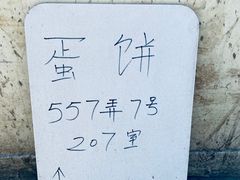 蛋饼
557弄7号
207室
↑